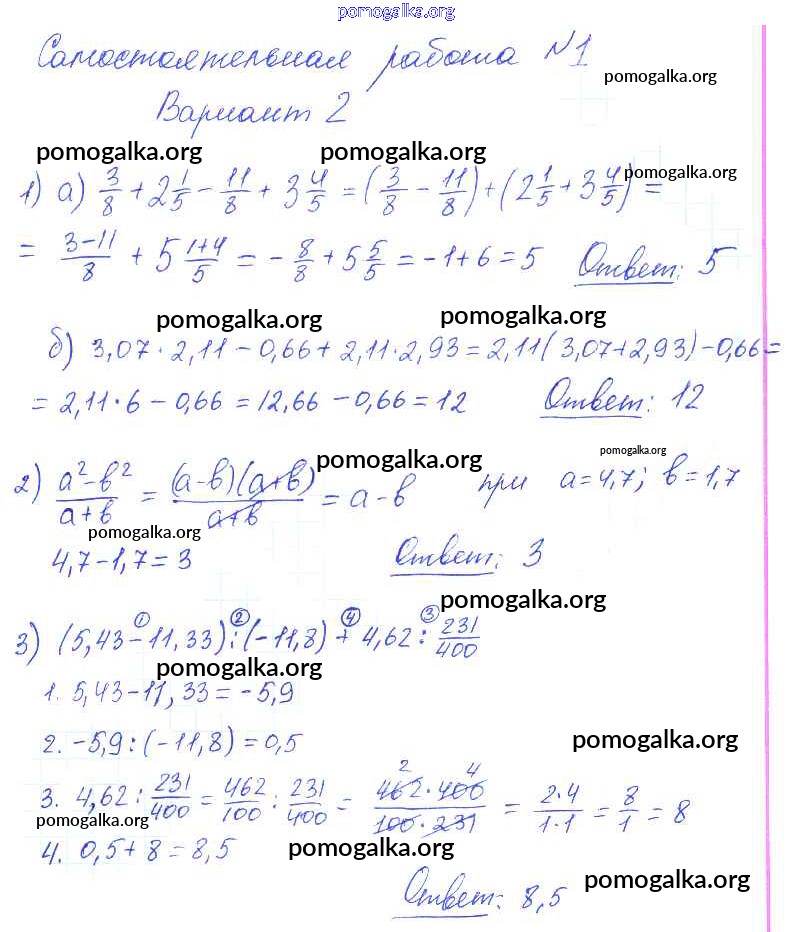 pomogalka.org
Самостоятельная работа №1
pomogalka.org
Вариант 2
pomogalka.org pomogalka.org pomogalka.org
1) а) 3/8 + 2 1/5 - 11/8 + 3 4/5 = (3/8 - 11/8) + (2 1/5 + 3 4/5) =
= (3-11)/8 + 5 (1+4)/5 = - 8/8 + 5 5/5 = -1 + 6 = 5 Ответ: 5
pomogalka.org pomogalka.org
б) 3,07 · 2,11 - 0,66 + 2,11 · 2,93 = 2,11(3,07+2,93) - 0,66 =
= 2,11 · 6 - 0,66 = 12,66 - 0,66 = 12 Ответ: 12
pomogalka.org pomogalka.org
2) (a²-b²)/(a+b) = (a-b)(a+b)/(a+b) = a-b при a=4,7; b=1,7
pomogalka.org
4,7-1,7=3 Ответ: 3
pomogalka.org
① ② ④ ③
3) (5,43-11,33):(-11,8) + 4,62 : 231/400
pomogalka.org
1. 5,43-11,33 = -5,9
2. -5,9:(-11,8) = 0,5
pomogalka.org
2 4
3. 4,62 : 231/400 = 462/100 : 231/400 = (462·400)/(100·231) = (2·4)/(1·1) = 8/1 = 8
pomogalka.org
4. 0,5+8 = 8,5
pomogalka.org
Ответ: 8,5
pomogalka.org